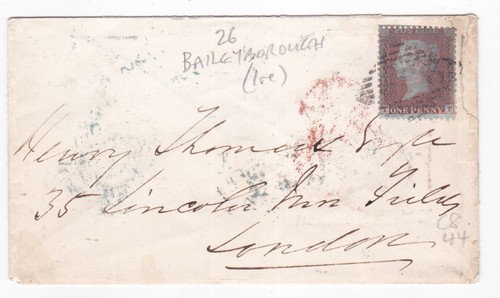 26
BAILEYBOROUGH
(Ire)
ONE PENNY
Henry Thomas Esqre
35 Lincoln Inn Fields
London
£8
44